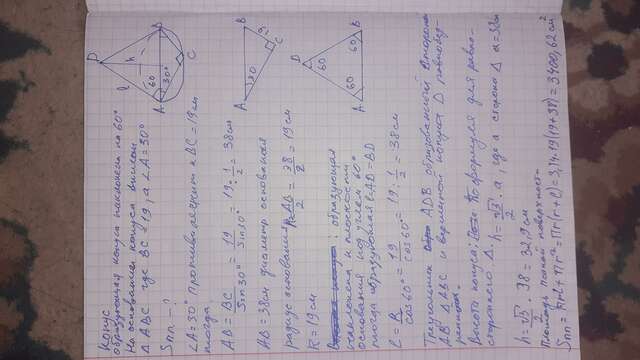 Конус
образующая конуса наклонена на 60°
На основании конуса вписан
△ ABC где BC = 19, а ∠A = 30°
Sпп - ?
∠A = 30° противолежит к BC = 19 см
тогда
AB = BC / Sin30° = 19 / Sin30° = 19 : 1/2 = 38 см
AB = 38 см диаметр основания
радиус основания R = AB / 2 = 38 / 2 = 19 см
R = 19 см
: образующая
наклонена к плоскости
основания под углом 60°
тогда образующая l = AD = BD
l = R / cos60° = 19 / cos60° = 19 : 1/2 = 38 см
Треугольник ADB образованный стороной
AB △ ABC и вершиной конуса D равносто-
ронний.
Высота конуса: формула для равно-
стороннего △ h = √3/2 · a, где a сторона △ a = 38 см
h = √3/2 · 38 = 32,9 см
Площадь полной поверхности
Sпп = πRl + πr² = πr(r+l) = 3,14·19(19+38) = 3400,62 см²
D
h
l
60
30°
A
B
C
A
30
B
19
C
D
60
60
60
A
B